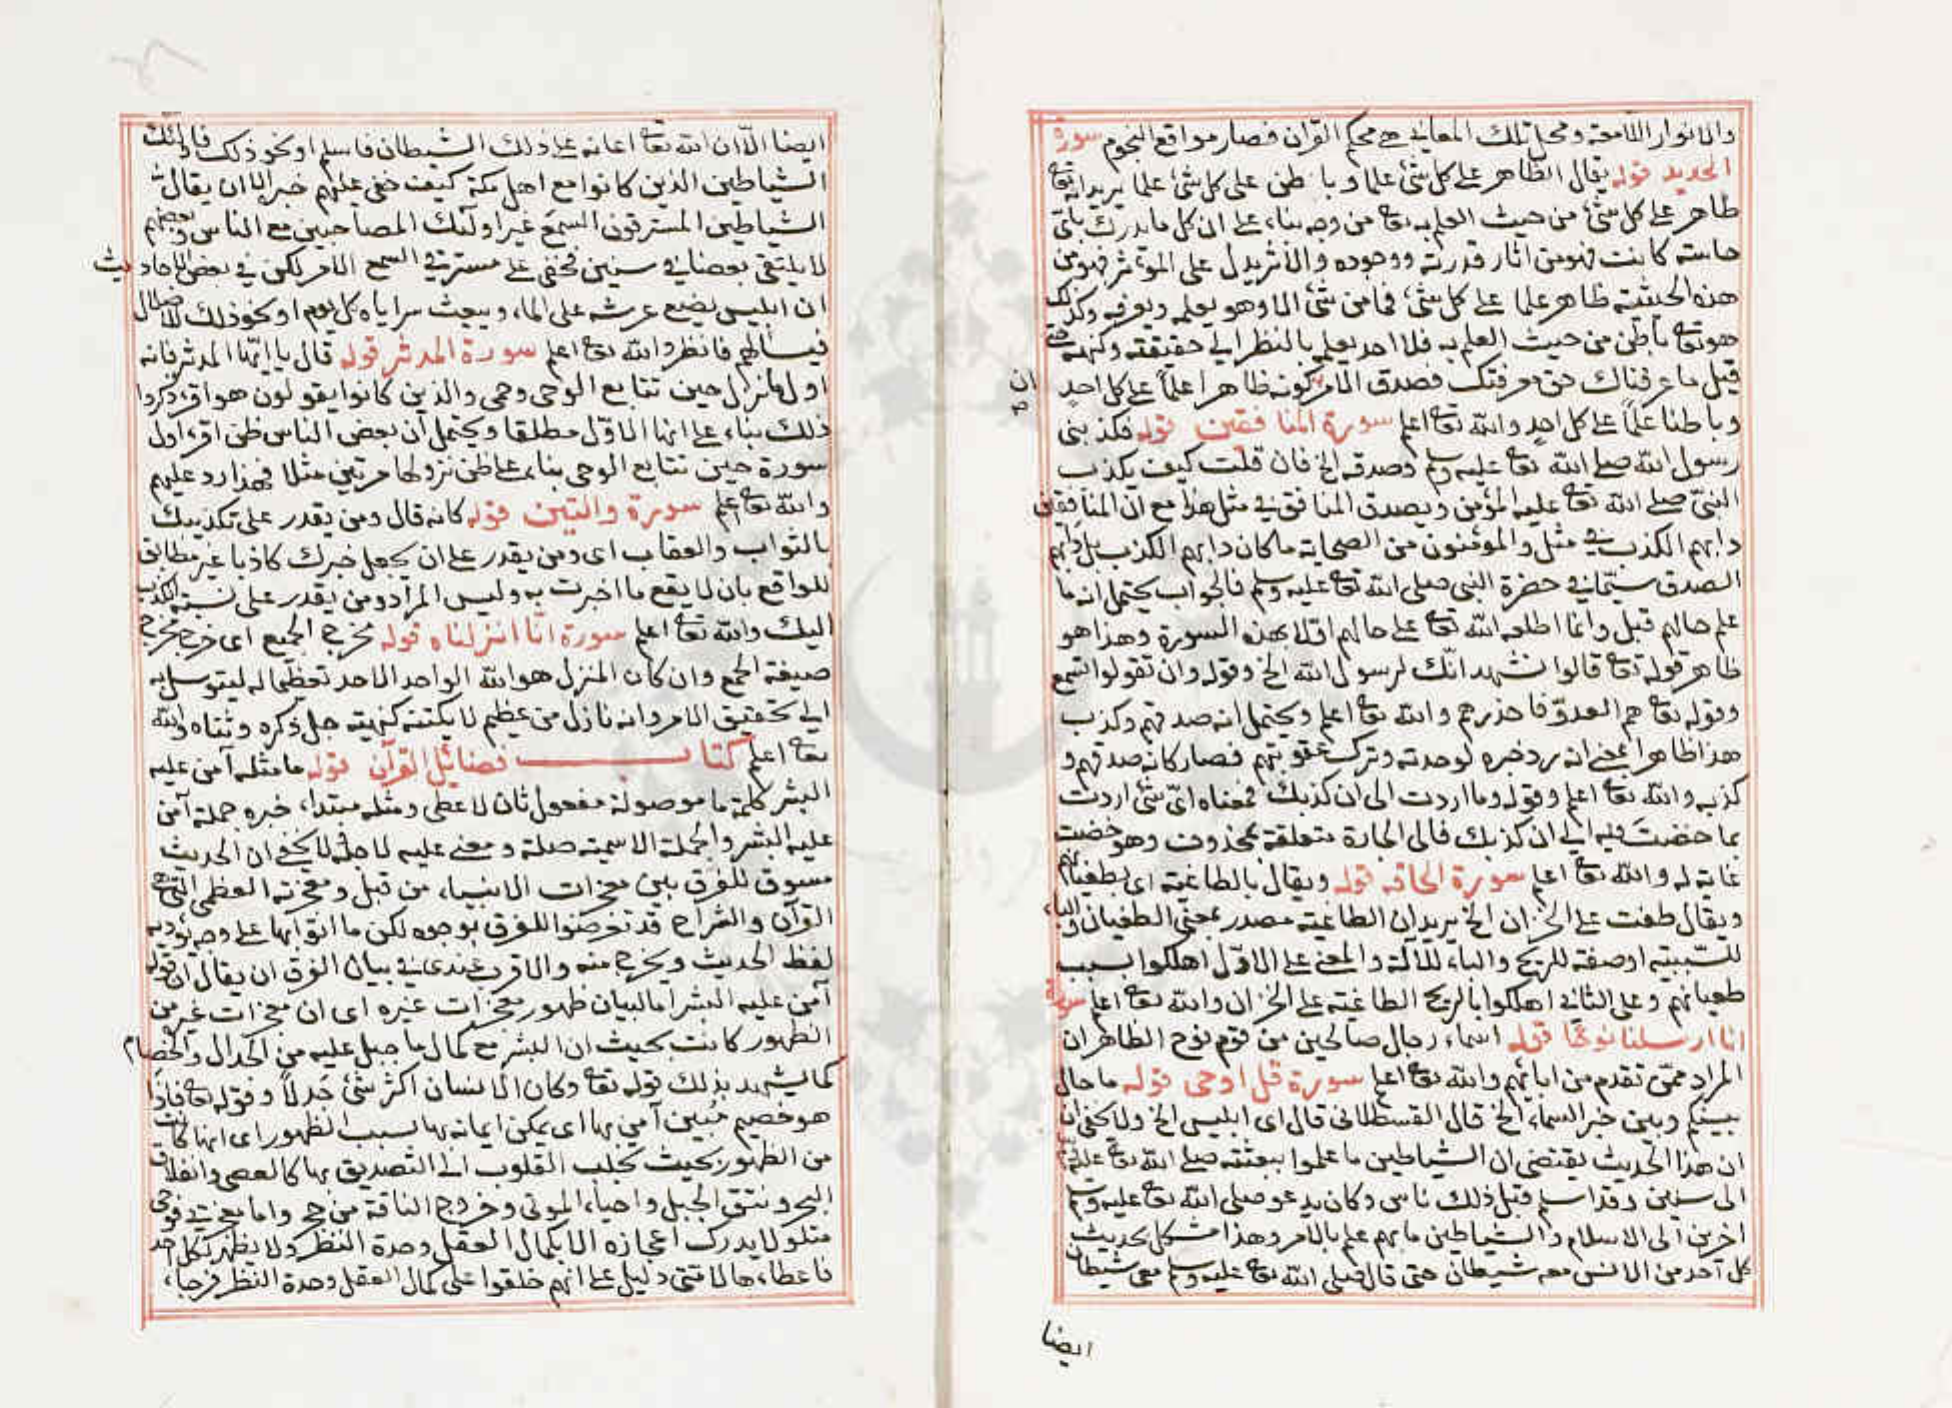 والانوار اللامعة ومحل تلك المعاني هي محكم القرآن فصار مواقع النجوم سورة
الحديد قوله يقال الظاهر على كل شئ علما وباطن على كل شئ علما يريد انه تعا
ظاهر على كل شئ من حيث العلم به تعا من وجه بناء على ان كل ما يدرك باي
حاسته كانت فهو من اثار قدرته ووجوده والاثر يدل على المؤثر فهو من
هذه الحيثية ظاهر علما على كل شئ فما من شئ الا وهو يعلمه ويعرفه وكذلك
هو تعا باطن من حيث العلم به فلا احد يعلم بالنظر الى حقيقته وكنهه حتى
قيل ما عرفناك حق معرفتك فصدق الامر كونه ظاهرا علما على كل احد
ان
وباطنا علما على كل احد والله تعا اعلم سورة المنافقين قوله فكذبني
رسول الله صلى الله تعا عليه وسلم وصدقه الخ فان قلت كيف يكذب
النبي صلى الله تعا عليه المؤمن ويصدق المنافق في مثل هذا مع ان المنافقين
دابهم الكذب في مثل والمؤمنون من الصحابة ما كان دابهم الكذب بل دابهم
الصدق سيما في حضرة النبي صلى الله تعا عليه وسلم فالجواب يحتمل انه ما
علم حالهم قبل وانما اطلعه الله تعا على حالهم اولا بهذه السورة وهذا هو
ظاهر قوله تعا قالوا نشهد انك لرسول الله الخ وقوله وان تقولوا تسمع
وقوله تعا هم العدو فاحذرهم والله تعا اعلم ويحتمل انه صدقهم وكذب
هذا ظاهرا بمعنى انه رد خبره لوحدته وترك عقوبتهم فصار كانه صدقهم و
كذبه والله تعا اعلم وقوله وما اردت الى ان كذبك فمعناه اي شئ اردت
بما خضت فيه الى ان كذبك فالى الجارة متعلقة بمحذوف وهو خضت
غاية له والله تعا اعلم سورة الحاقه قوله ويقال بالطاغية اي بطغيانهم
ويقال طغت على الخزان الخ يريد ان الطاغية مصدر بمعنى الطغيان والباء
للسببية او صفة للريح والباء للآلة والمعنى على الاول اهلكوا بسبب
طغيانهم وعلى الثاني اهلكوا بالريح الطاغية على الخزان والله تعا اعلم سورة
انا ارسلنا نوحا قوله اسماء رجال صالحين من قوم نوح الظاهر ان
المراد ممن تقدم من ابائهم والله تعا اعلم سورة قل اوحى قوله ما حال
بينكم وبين خبر السماء الخ قال القسطلانى قال اي ابليس الخ ولا يخفى ان
ان هذا الحديث يقتضى ان الشياطين ما علموا ببعثته صلى الله تعا عليه
الى سنين وقد اسلم قبل ذلك ناس وكان يدعو صلى الله تعا عليه وسلم
اخرين الى الاسلام والشياطين ما بهم علم بالامر وهذا مشكل بحديث
كل احد من الانس معه شيطان حتى قال صلى الله تعا عليه وسلم معى شيطان
ايضا
ايضا الا ان الله تعا اعانه على ذلك الشيطان فاسلم او نحو ذلك فاولئك
الشياطين الذين كانوا مع اهل مكة كيف خفى عليهم خبر الا ان يقال
الشياطين المسترقون السمع غير اولئك المصاحبين مع الناس وبعضهم
لا يلتقى بعضا في سنين فخفى على مسترقي السمع الامر لكن في بعض الاحاديث
ان ابليس يضع عرشه على الماء ويبعث سراياه كل يوم او نحو ذلك للاضلال
فيسالهم فانظر والله تعا اعلم سورة المدثر قوله قال يا ايها المدثر فانه
اول ما نزل حين تتابع الوحى وحمى والذين كانوا يقولون هو اقرء ذكروا
ذلك بناء على انها الاول مطلقا ويحتمل ان بعض الناس ظن اقرء اول
سورة حين تتابع الوحى بناء على ظن نزولها مرتين مثلا فهذا رد عليهم
والله تعا اعلم سورة والتين قوله كانه قال ومن يقدر على تكذيبك
بالثواب والعقاب اى ومن يقدر على ان يجعل خبرك كاذبا غير مطابق
للواقع بان لا يقع ما اخبرت به وليس المراد ومن يقدر على نسبة الكذب
اليك والله تعا اعلم سورة انا انزلناه قوله مخرج الجميع اى خرج مخرج
صيغة الجمع وان كان المنزل هو الله الواحد الاحد تعظيما له ليتوسل به
الى تحقيق الامر وانه نازل من عظيم لا يكتنه كنهيته جل ذكره وثناه والله
تعا اعلم كتاب فضائل القرآن قوله ما مثله آمن عليه
البشر كلمة ما موصولة مفعول ثان لاعطى ومثله مبتداء خبره جملة آمن
عليه البشر والجملة الاسمية صلة ومعنى عليه لاجله لا يخفى ان الحديث
مسوق للفرق بين معجزات الانبياء من قبل ومعجزته العظمى التي هي
القرآن والشراح قد تعرضوا للفرق بوجوه لكن ما اتوا بها على وجه يؤديه
لفظ الحديث ويخرج منه والاقرب عندى في بيان الفرق ان يقال ان قوله
آمن عليه البشر اما لبيان ظهور معجزات غيره اى ان معجزات غيره من
الظهور كانت بحيث ان البشر مع كمال ما جبل عليه من الجدال والخصام
كما يشهد بذلك قوله تعا وكان الانسان اكثر شئ جدلا وقوله تعا فاذا
هو خصيم مبين آمن بها اى يمكن ايمانه بها بسبب الظهور اى انها كانت
من الظهور بحيث تجلب القلوب الى التصديق بها كالعصى وانفلاق
البحر ونتق الجبل واحياء الموتى وخروج الناقة من حجر واما معجزتي فوحى
متلو لا يدرك اعجازه الا بكمال العقل وحدة النظر ولا يظهر لكل احد
فاعطاءها لامتى دليل على انهم خلقوا على كمال العقل وحدة النظر فرجاء